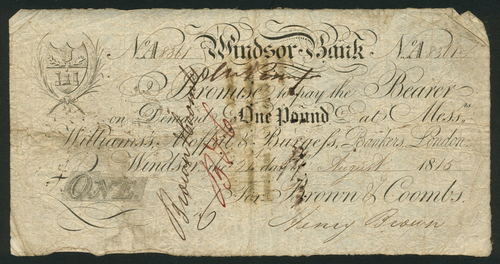 No A 8361 Windsor Bank No A 8361
I Promise to pay the Bearer
on Demand One Pound at Messrs
Williams, Moffat & Burgess, Bankers, London.
Windsor day of August 1815
ONE For Brown & Coombs.
Henry Brown